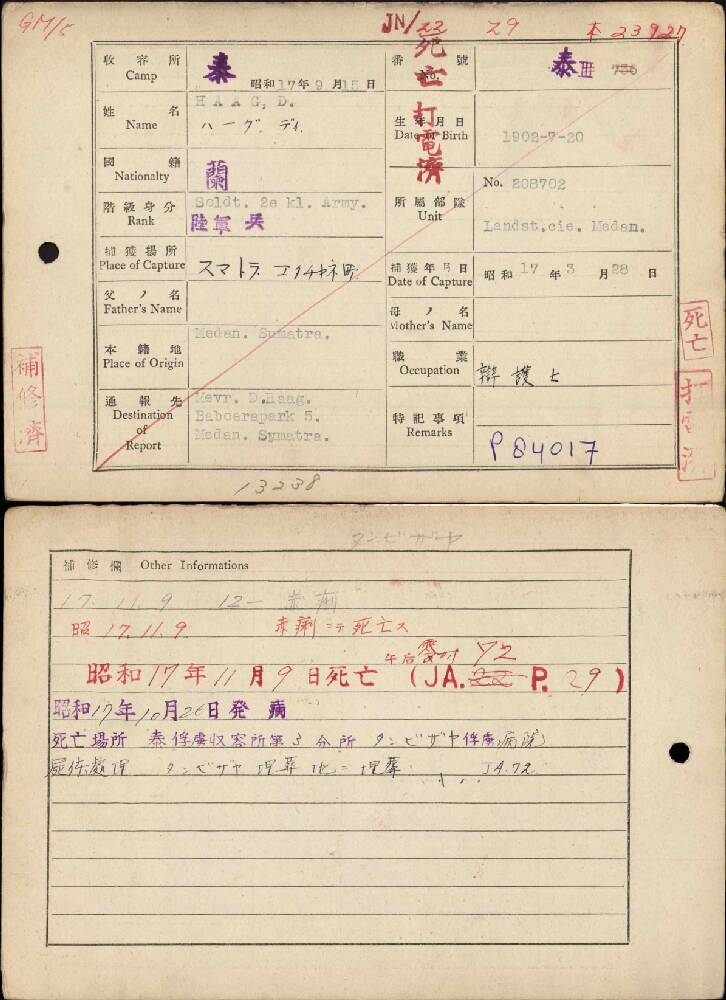 GM/5 JN/22 Z9 本 23927
死亡打電済
收容所 Camp 泰 昭和17年9月15日
番號 No. 泰III 736
姓名 Name HAAG, D.
ハーグ. ディ.
生年月日 Date of Birth 1902-7-20
國籍 Nationalty 蘭
階級身分 Rank Soldt. 2e kl. Army.
陸軍兵
所屬部隊 Unit No. 208702
Landst.cie. Medan.
捕獲場所 Place of Capture スマトラ
捕獲年月日 Date of Capture 昭和 17 年 3 月 28 日
父ノ名 Father's Name
母ノ名 Mother's Name
本籍地 Place of Origin Medan. Sumatra.
職業 Occupation 辯護士
通報先 Destination of Report Mevr. D.Haag.
Baboerapark 5.
Medan. Symatra.
特記事項 Remarks P 84017
補修濟
死亡
打電済
13238
タンビザヤ
補修欄 Other Informations
17. 11. 9 12- 赤痢
昭 17. 11. 9. 赤痢ニテ死亡ス
午后 72
昭和17年11月9日死亡 (JA. 22 P. 29)
昭和17年10月26日発病
死亡場所 泰俘虜収容所第3分所 タンビザヤ俘虜病院
屍体處理 タンビザヤ埋葬地ニ埋葬 JA.72